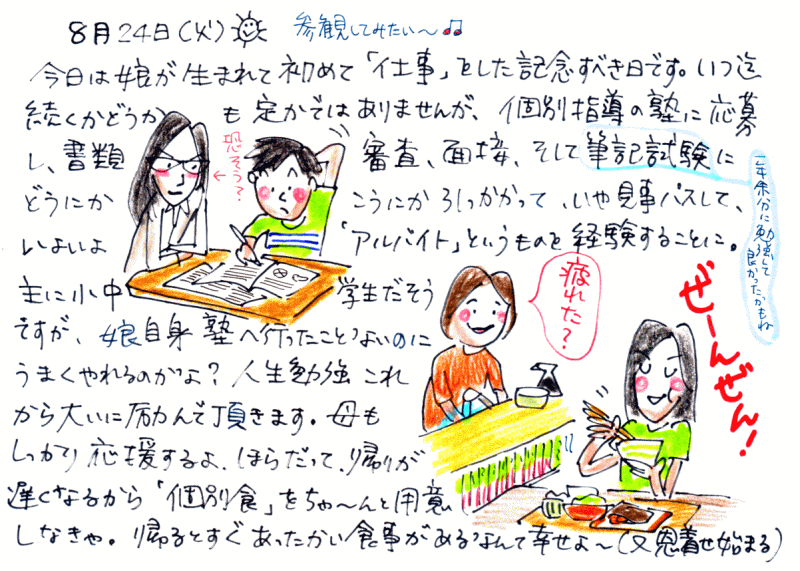 8月24日(火) 参観してみたい〜♫
今日は娘が生まれて初めて「仕事」をした記念すべき日です。いつ迄
続くかどうかも定かではありませんが、個別指導の塾に応募
し、書類審査、面接、そして筆記試験に
どうにかこうにかひっかかって、いや見事パスして、
いよいよ「アルバイト」というものを経験することに。
主に小中学生だそう
ですが、娘自身塾へ行ったことないのに
うまくやれるのかよ?人生勉強これ
から大いに励んで頂きます。母も
しっかり応援するよ、ほらだって、帰りが
遅くなるから「個別食」をちゃ〜んと用意
しなきゃ。帰るとすぐあったかい食事があるなんて幸せよ〜(又恩着せ始まる)
恐そう?
一年余分に勉強して
良かったかもね
疲れた?
ぜーんぜん!